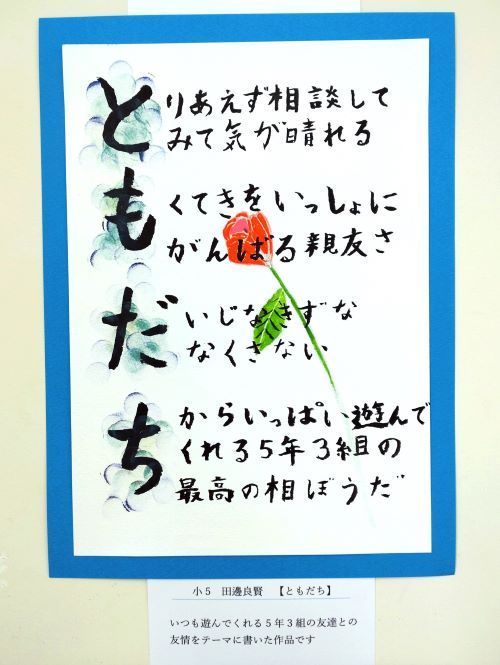 とりあえず相談して
みて気が晴れる
もくてきをいっしょに
がんばる親友さ
だいじなきずな
なくさない
ちからいっぱい遊んで
くれる5年3組の
最高の相ぼうだ
小5 田邊良賢 【ともだち】
いつも遊んでくれる5年3組の友達との
友情をテーマに書いた作品です